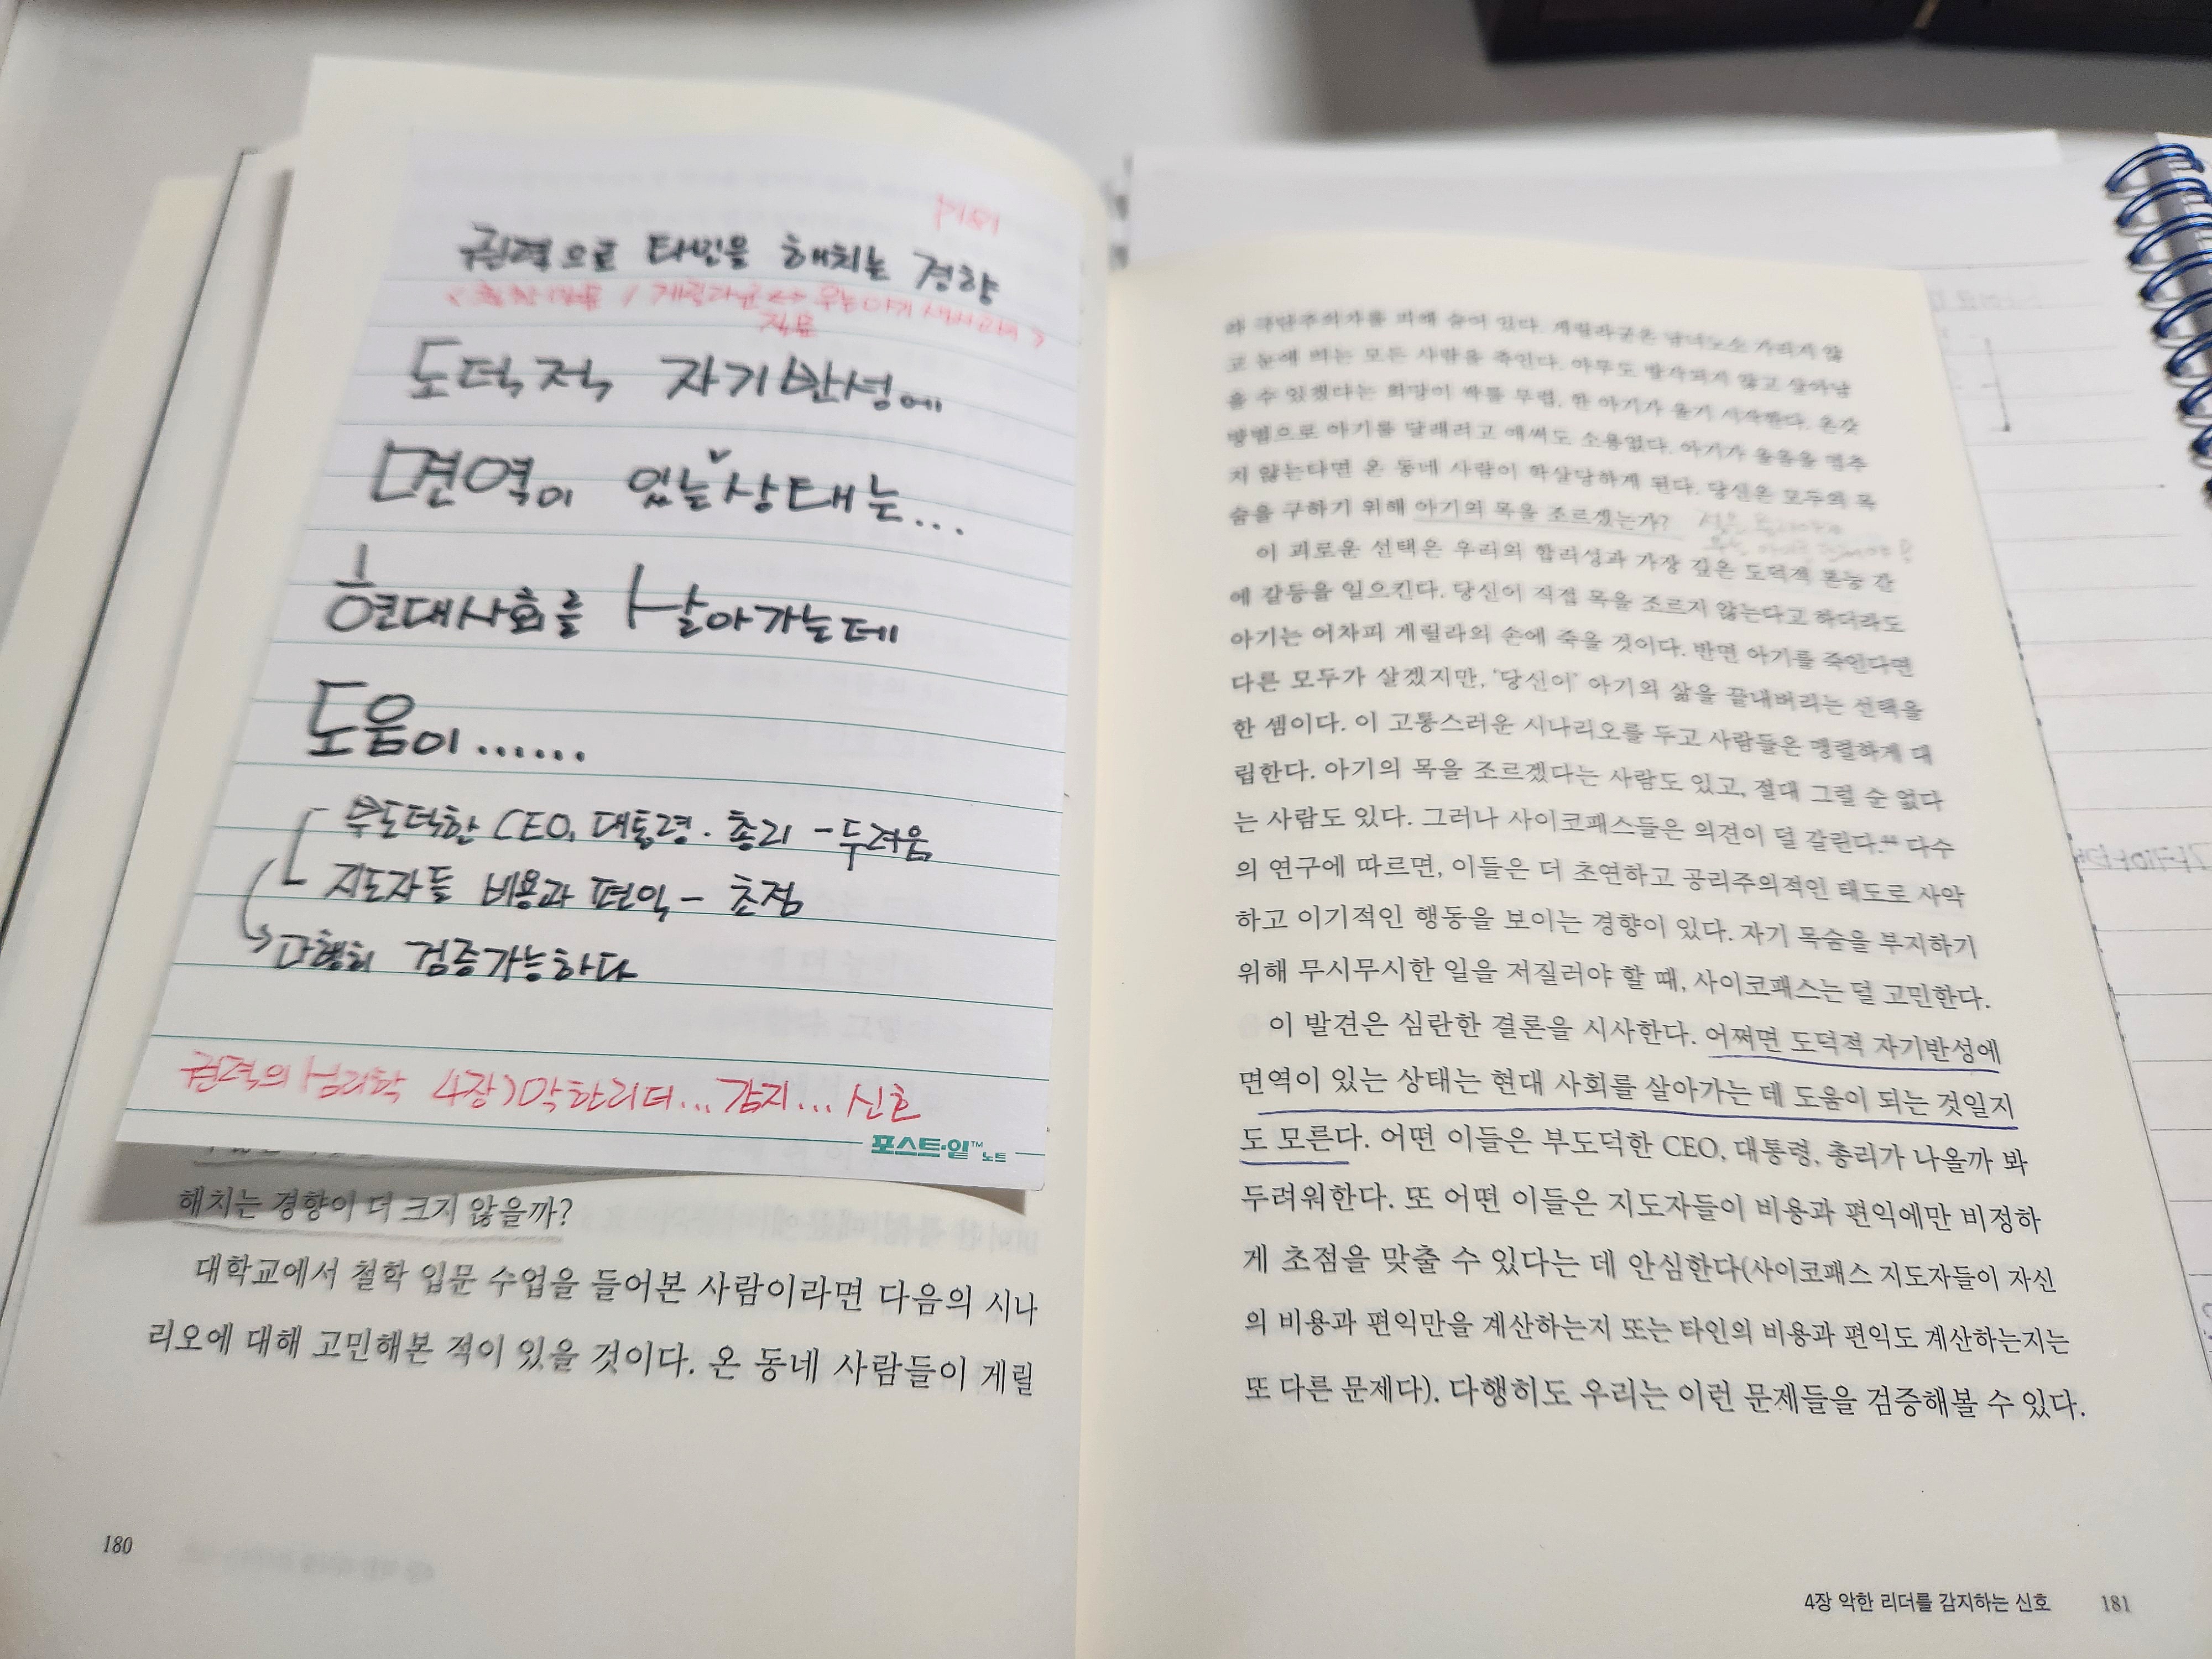 권력으로 타인을 해치는 경향
도덕적 자기반성에
면역이 있는 상태는...
현대사회를 살아가는데
도움이......
부도덕한 CEO, 대통령. 총리 - 두려움
지도자들 비용과 편익 - 초점
다행히 검증가능하다
권력의 심리학 4장) 악한리더... 감지... 신호
포스트·잍™ 노트
해치는 경향이 더 크지 않을까?
대학교에서 철학 입문 수업을 들어본 사람이라면 다음의 시나
리오에 대해 고민해본 적이 있을 것이다. 온 동네 사람들이 게릴
180
라 극단주의자를 피해 숨어 있다. 게릴라군은 남녀노소 가리지 않
고 눈에 띄는 모든 사람을 죽인다. 아무도 발각되지 않고 살아남
을 수 있겠다는 희망이 싹틀 무렵, 한 아기가 울기 시작한다. 온갖
방법으로 아기를 달래려고 애써도 소용없다. 아기가 울음을 멈추
지 않는다면 온 동네 사람이 학살당하게 된다. 당신은 모두의 목
숨을 구하기 위해 아기의 목을 조르겠는가?
이 괴로운 선택은 우리의 합리성과 가장 깊은 도덕적 본능 간
에 갈등을 일으킨다. 당신이 직접 목을 조르지 않는다고 하더라도
아기는 어차피 게릴라의 손에 죽을 것이다. 반면 아기를 죽인다면
다른 모두가 살겠지만, '당신이' 아기의 삶을 끝내버리는 선택을
한 셈이다. 이 고통스러운 시나리오를 두고 사람들은 맹렬하게 대
립한다. 아기의 목을 조르겠다는 사람도 있고, 절대 그럴 순 없다
는 사람도 있다. 그러나 사이코패스들은 의견이 덜 갈린다. 다수
의 연구에 따르면, 이들은 더 초연하고 공리주의적인 태도로 사악
하고 이기적인 행동을 보이는 경향이 있다. 자기 목숨을 부지하기
위해 무시무시한 일을 저질러야 할 때, 사이코패스는 덜 고민한다.
이 발견은 심란한 결론을 시사한다. 어쩌면 도덕적 자기반성에
면역이 있는 상태는 현대 사회를 살아가는 데 도움이 되는 것일지
도 모른다. 어떤 이들은 부도덕한 CEO, 대통령, 총리가 나올까 봐
두려워한다. 또 어떤 이들은 지도자들이 비용과 편익에만 비정하
게 초점을 맞출 수 있다는 데 안심한다(사이코패스 지도자들이 자신
의 비용과 편익만을 계산하는지 또는 타인의 비용과 편익도 계산하는지는
또 다른 문제다). 다행히도 우리는 이런 문제들을 검증해볼 수 있다.
4장 악한 리더를 감지하는 신호 181